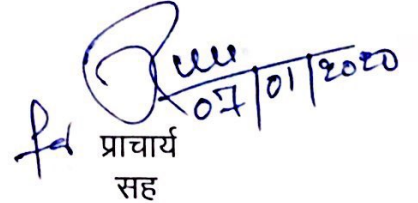 07/01/2020
for प्राचार्य
सह